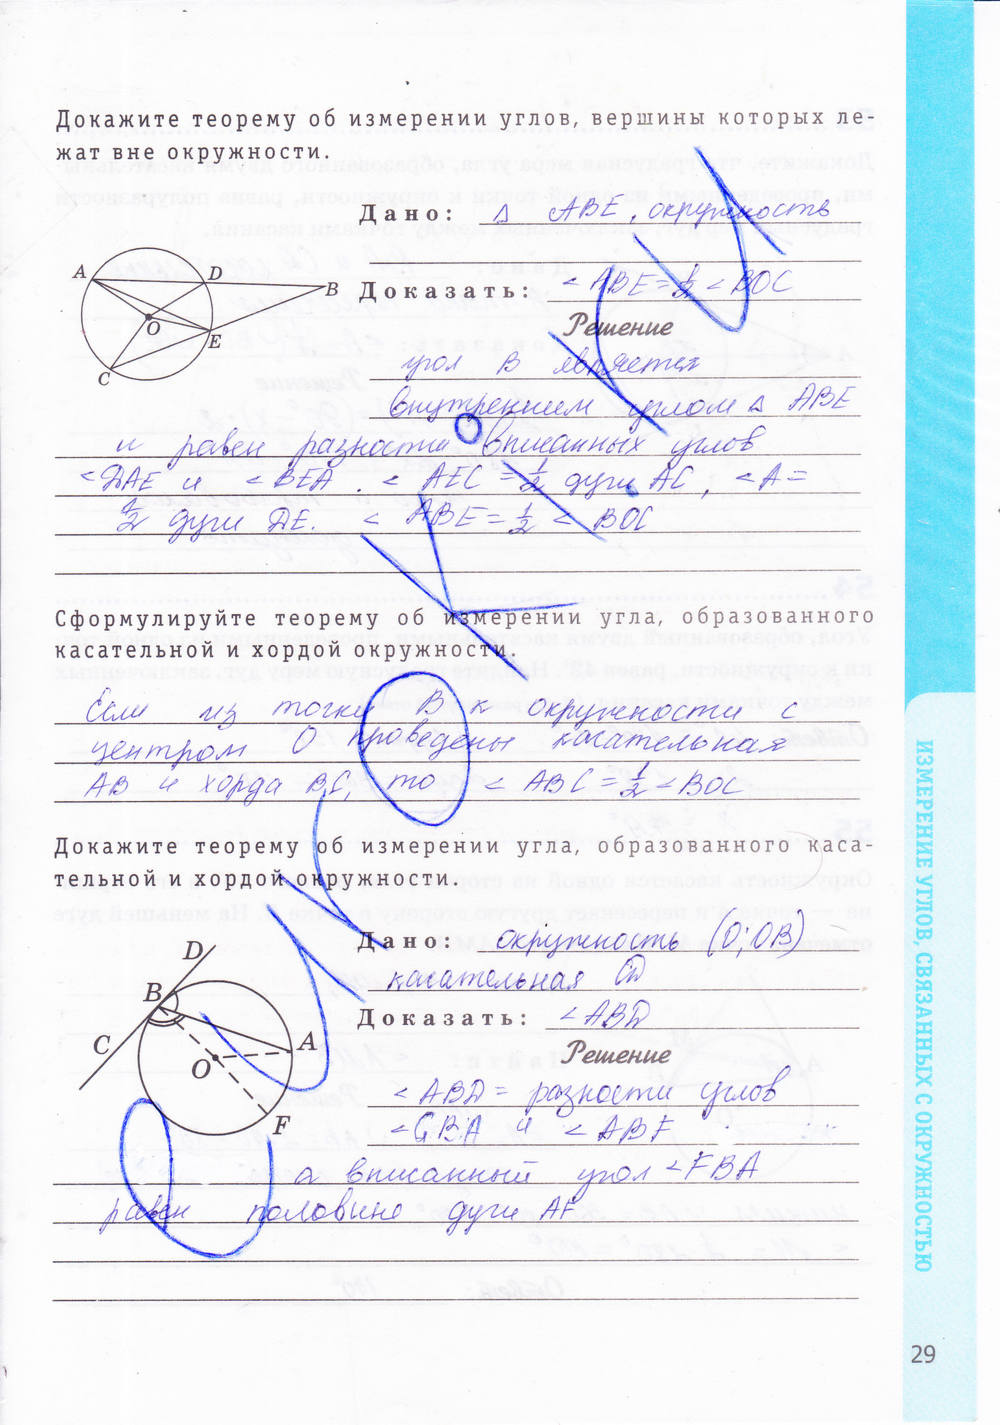 Докажите теорему об измерении углов, вершины которых ле-
жат вне окружности.
Дано: Δ ABE, окружность
Доказать: <ABE=½ <BOC
A
D
B
O
E
C
Решение
угол B является
внутренним углом Δ ABE
и равен разности вписанных углов
<DAE и <BEA. < AEC = ½ дуги AC, <A=
½ дуги DE. < ABE = ½ < BOC
Сформулируйте теорему об измерении угла, образованного
касательной и хордой окружности.
Если из точки B к окружности с
центром O проведены касательная
AB и хорда BC, то < ABC = ½ <BOC
Докажите теорему об измерении угла, образованного каса-
тельной и хордой окружности.
Дано: окружность (O; OB)
касательная
Доказать: <ABD
D
B
C
A
O
F
Решение
<ABD = разности углов
<CBA и <ABF
а вписанный угол <FBA
равен половине дуги AF
ИЗМЕРЕНИЕ УГЛОВ, СВЯЗАННЫХ С ОКРУЖНОСТЬЮ
29